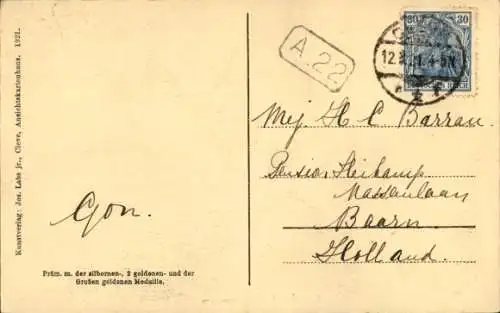 Kunstverlag: Jos. Labs jr., Cleve, Ansichtskartenhaus. 1921.
Gon.
Präm. m. der silbernen-, 2 goldenen- und der
Großen goldenen Medaille.
A. 22
30 30
12. 21. 4-5N
Mej. H C Barrau.
Pension Heikamp
Massaulaan
Baarn
Holland.